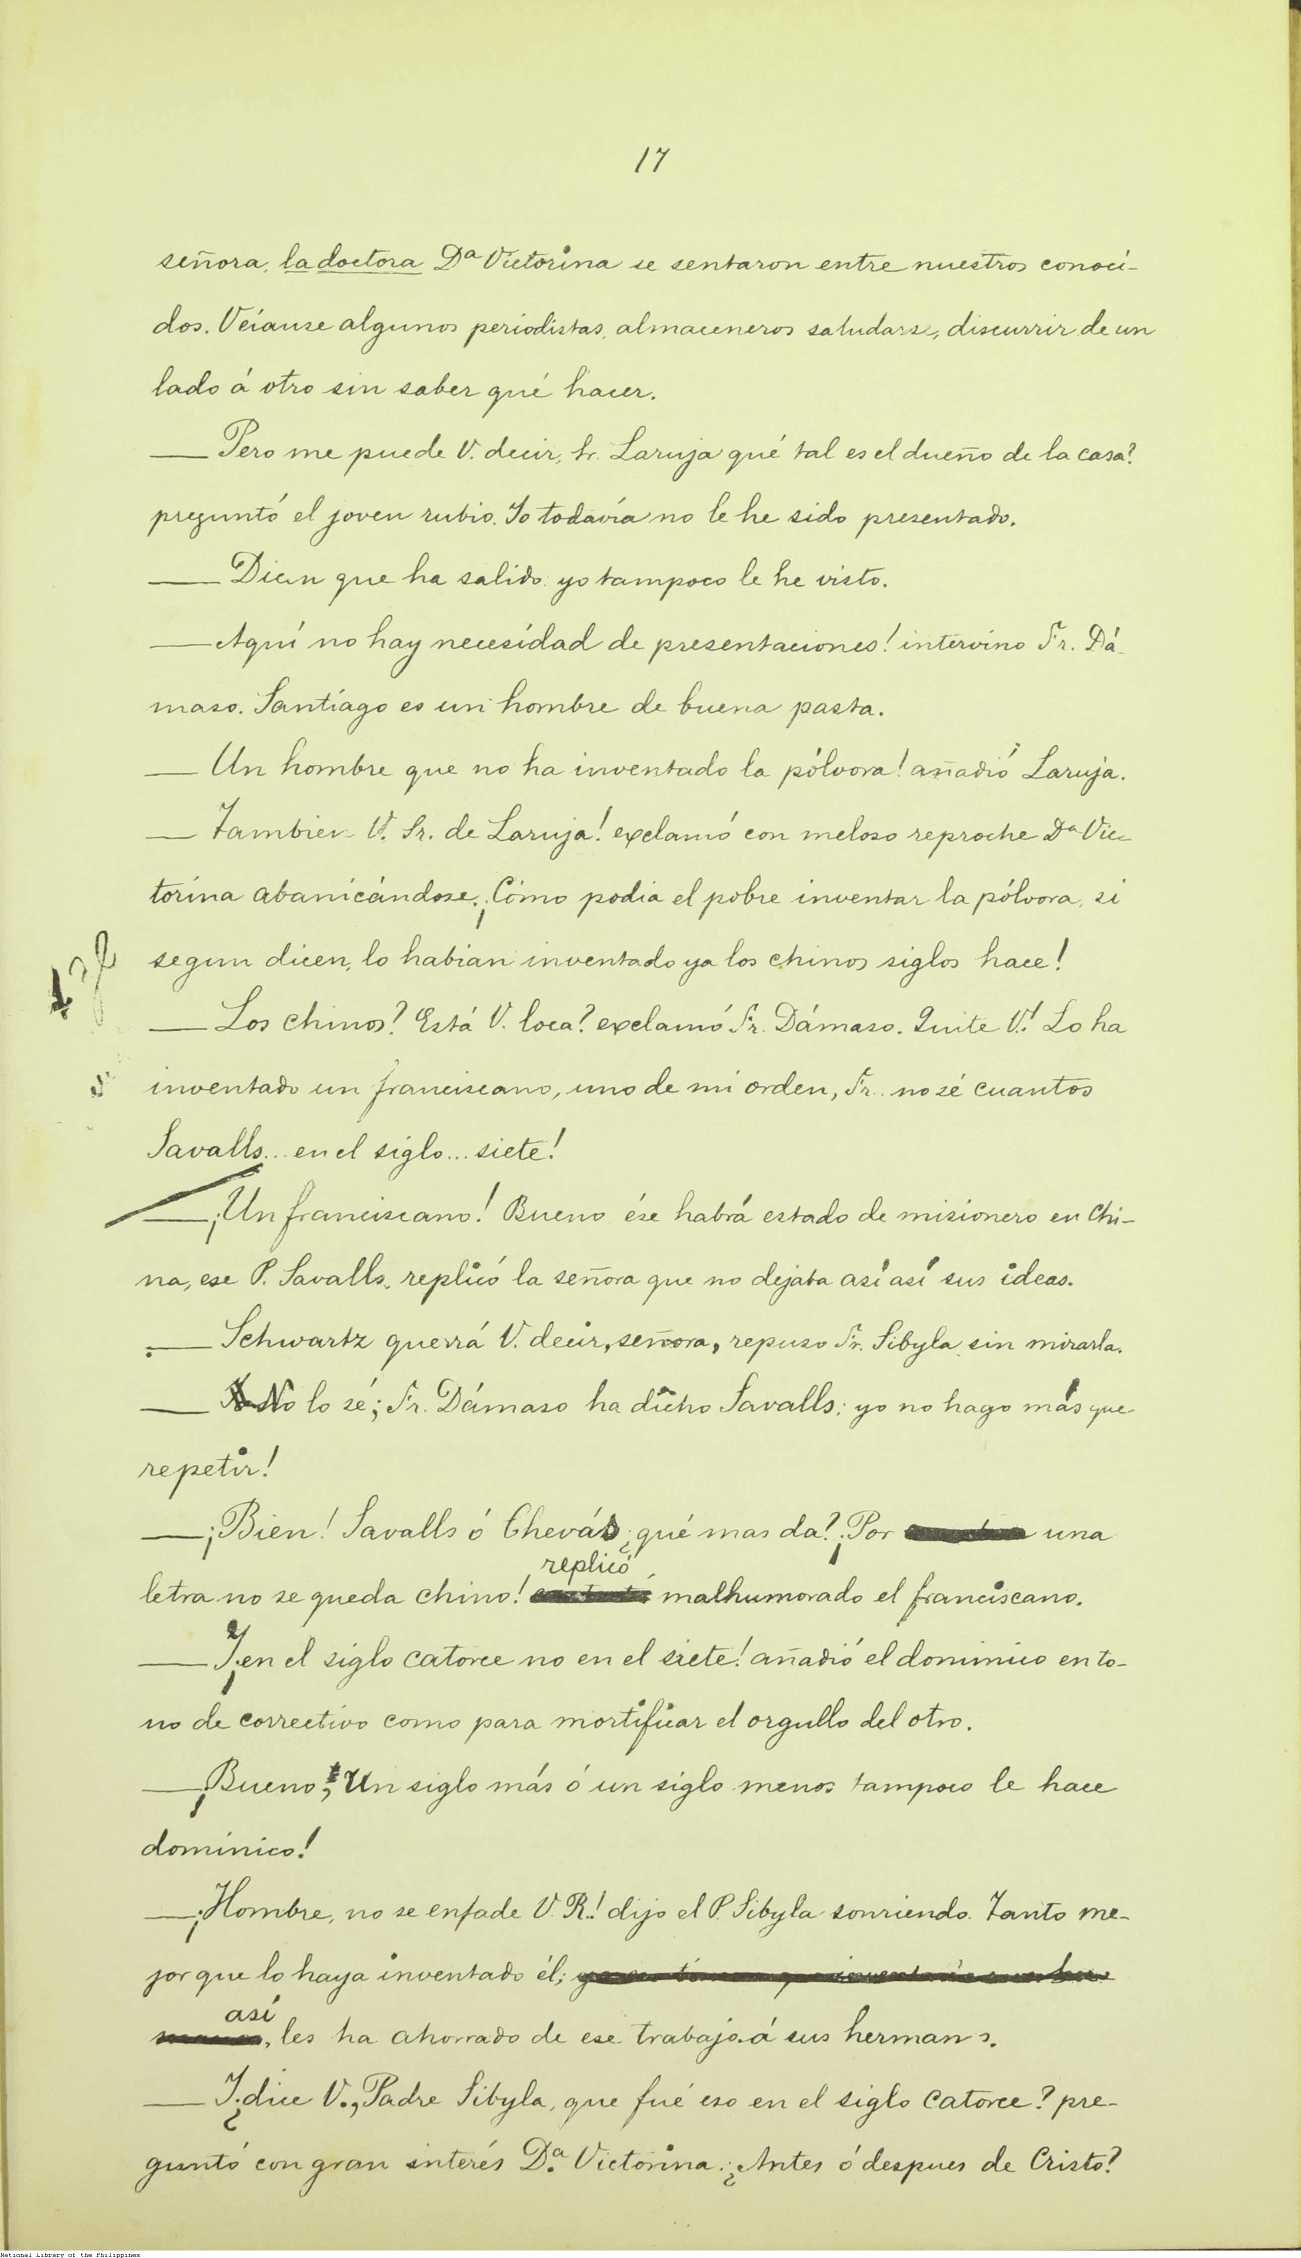 17
señora, la doctora Dª Victorina se sentaron entre nuestros conoci-
dos. Veíanse algunos periodistas, almaceneros saludarse, discurrir de un
lado á otro sin saber qué hacer.
— Pero me puede V. decir, Sr. Laruja qué tal es el dueño de la casa?
preguntó el joven rubio. Yo todavía no le he sido presentado.
— Dicen que ha salido: yo tampoco le he visto.
— Aquí no hay necesidad de presentaciones! intervino Fr. Dá-
maso. Santiago es un hombre de buena pasta.
— Un hombre que no ha inventado la pólvora! añadió Laruja.
— Tambien V. Sr. de Laruja! exclamó con meloso reproche Dª Vic-
torina abanicándose. ¡Cómo podia el pobre inventar la pólvora, si
segun dicen, lo habian inventado ya los chinos siglos hace!
— Los chinos? Está V. loca? exclamó Fr. Dámaso. Quite V.! Lo ha
inventado un franciscano, uno de mi orden, Fr. no sé cuantos
Savalls... en el siglo... siete!
— ¡Un franciscano! Bueno ése habrá estado de misionero en Chi-
na, ese P. Savalls, replicó la señora que no dejaba así así sus ideas.
— Schwartz querrá V. decir, señora, repuso Fr. Sibyla sin mirarla.
— No lo sé; Fr. Dámaso ha dicho Savalls: yo no hago más que
repetir!
— ¡Bien! Savalls ó Chevás ¿qué mas da? ¡Por una
replicó
letra no se queda chino! malhumorado el franciscano.
— Y ¡en el siglo catorce no en el siete! añadió el dominico en to-
no de correctivo como para mortificar el orgullo del otro.
— ¡Bueno!, Un siglo más ó un siglo menos tampoco le hace
dominico!
— ¡Hombre, no se enfade V. R.! dijo el P. Sibyla sonriendo. Tanto me-
jor que lo haya inventado él;
así
, les ha ahorrado de ese trabajo á sus hermanos.
— Y ¿dice V., Padre Sibyla, que fué eso en el siglo catorce? pre-
guntó con gran interés Dª. Victorina. ¿Antes ó despues de Cristo?
National Library of the Philippines